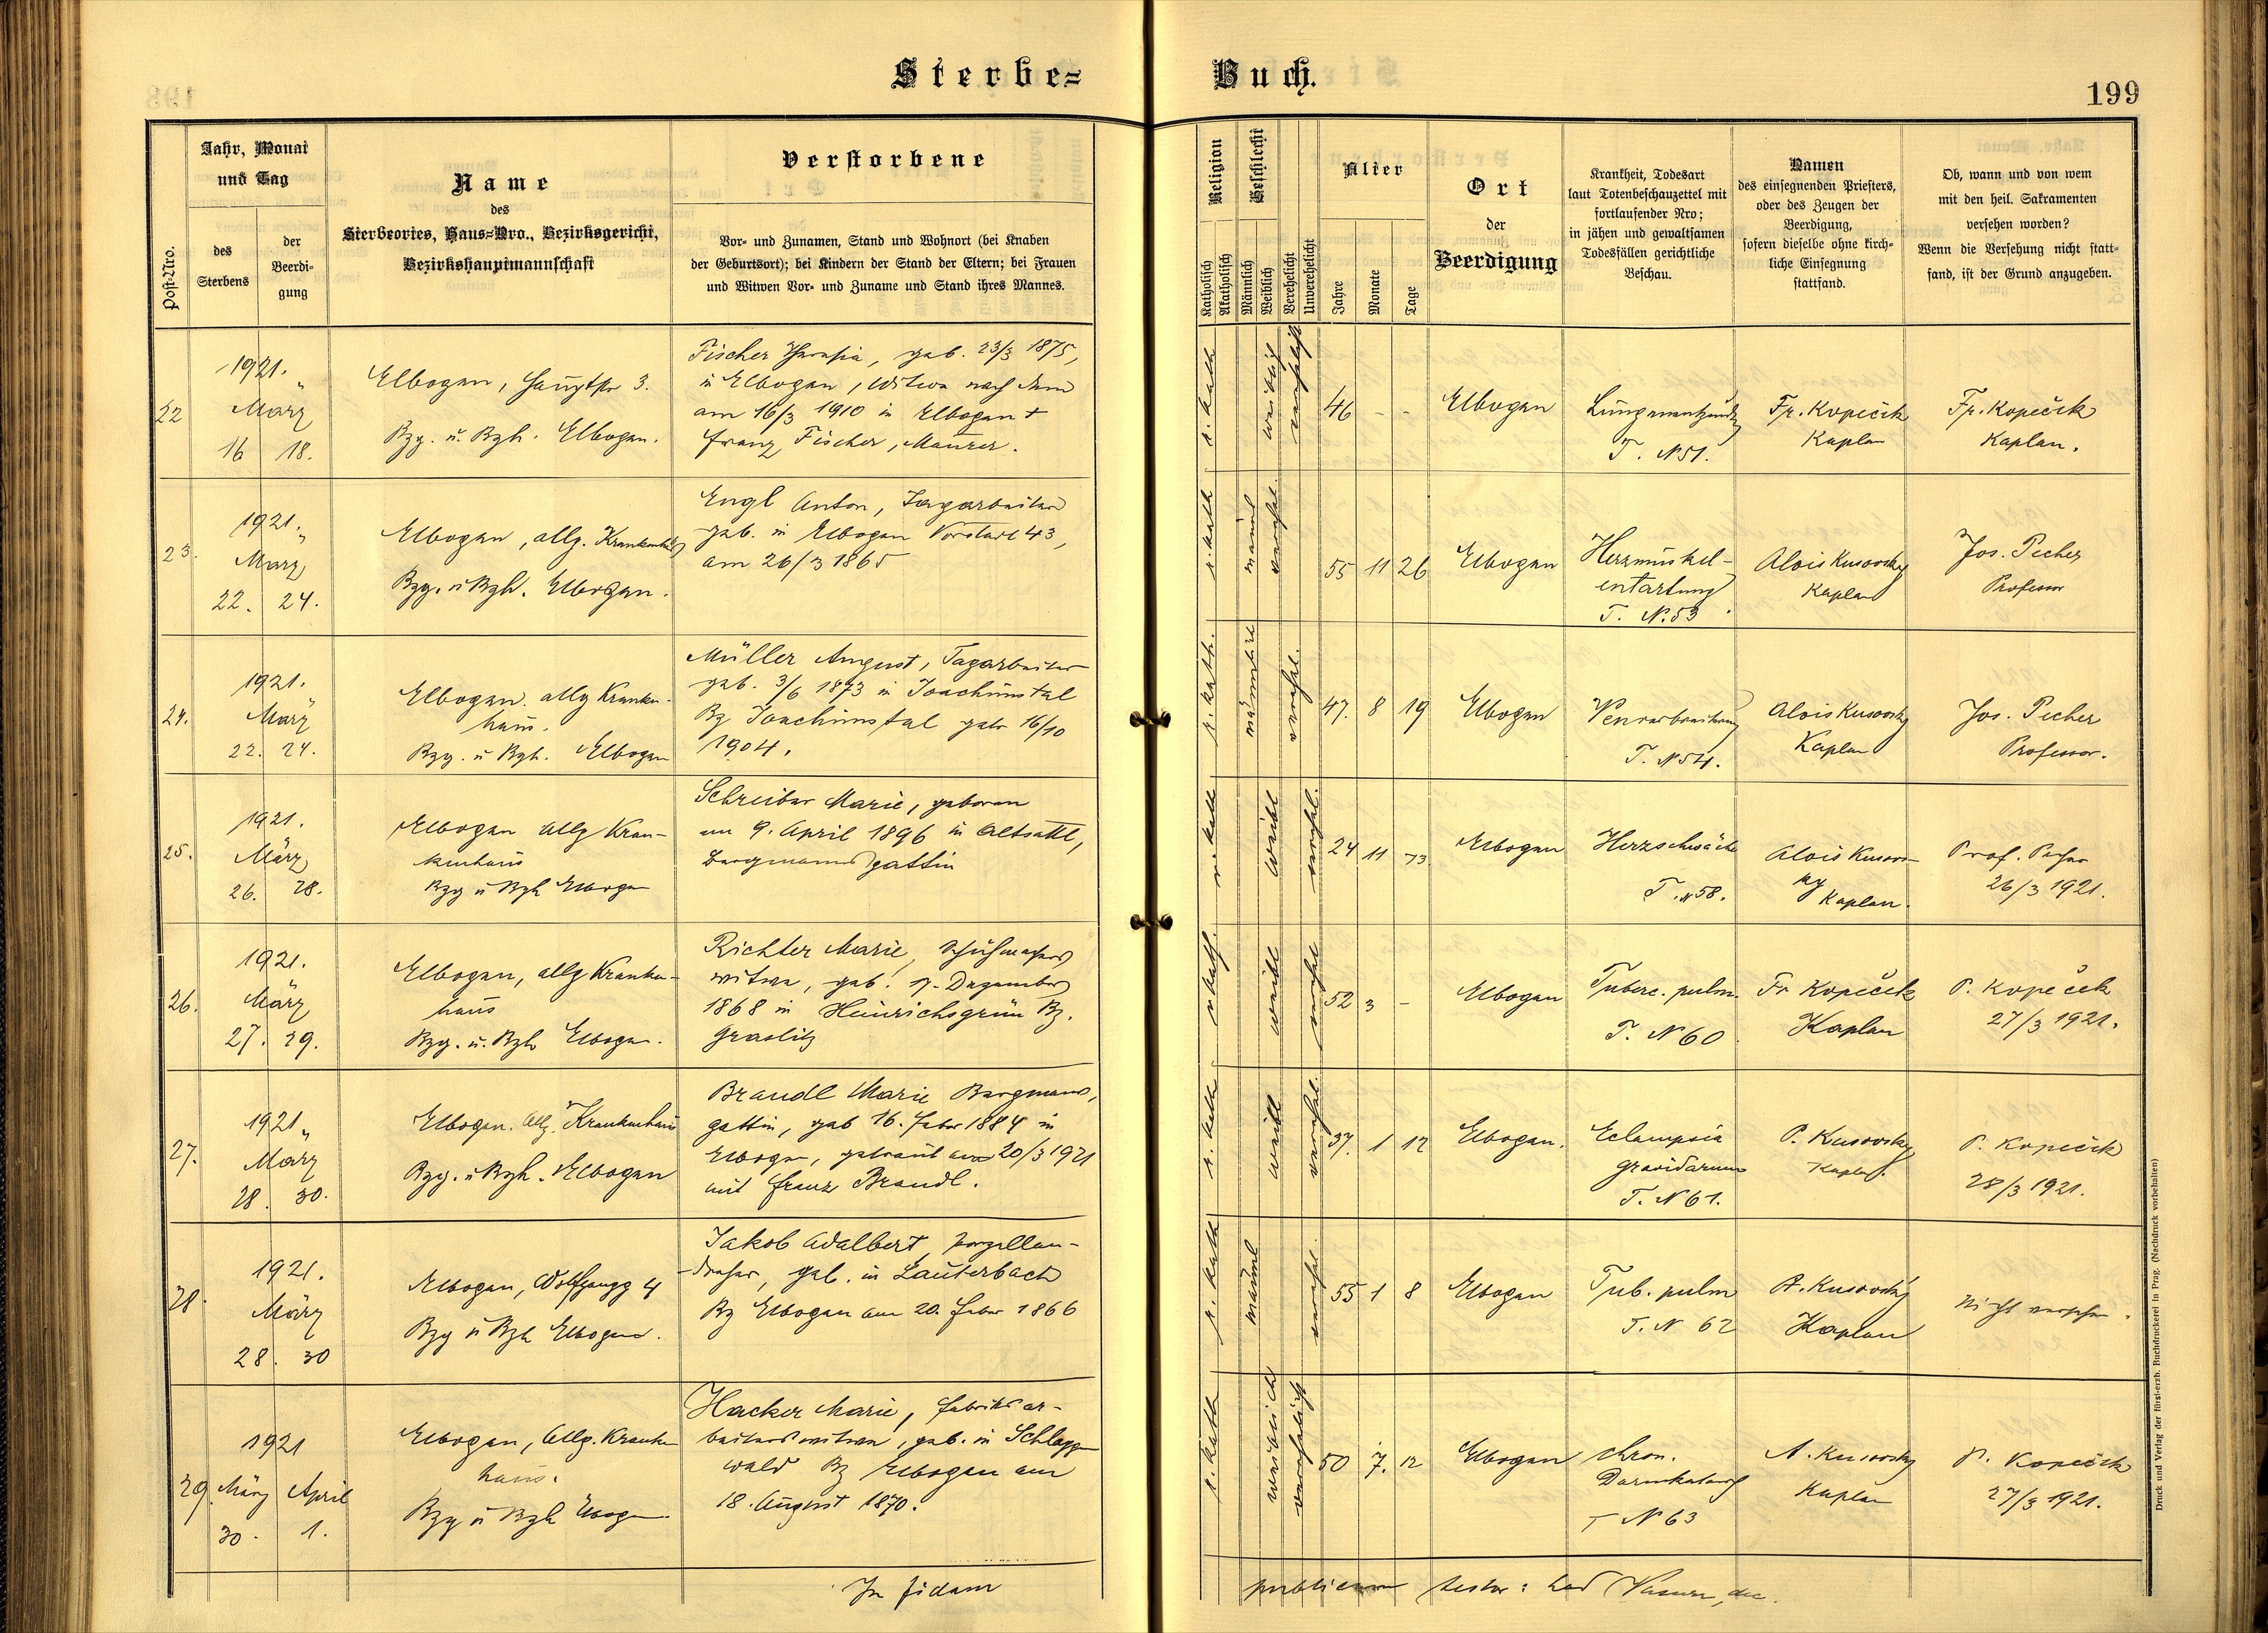 Sterbe= Buch.
199
Post-Nro.
Jahr, Monat
und Tag
des
Sterbens
der
Beerdi-
gung
Name
des
Sterbeortes, Haus=Nro., Bezirksgericht,
Bezirkshauptmannschaft
Verstorbene
Vor- und Zunamen, Stand und Wohnort (bei Knaben
der Geburtsort); bei Kindern der Stand der Eltern; bei Frauen
und Witwen Vor- und Zuname und Stand ihres Mannes.
Religion
Katholisch
Akatholisch
Geschlecht
Männlich
Weiblich
Verehelicht
Unverehelicht
Alter
Jahre
Monate
Tage
Ort
der
Beerdigung
Krankheit, Todesart
laut Totenbeschauzettel mit
fortlaufender Nro;
in jähen und gewaltsamen
Todesfällen gerichtliche
Beschau.
Namen
des einsegnenden Priesters,
oder des Zeugen der
Beerdigung,
sofern dieselbe ohne kirch-
liche Einsegnung
stattfand.
Ob, wann und von wem
mit den heil. Sakramenten
versehen worden?
Wenn die Versehung nicht statt-
fand, ist der Grund anzugeben.
22
1921.
März
16 18.
Elbogen, Hauptstr 3.
Bzg. u. Bzh. Elbogen.
Fischer Theresia, geb. 23/3 1875,
in Elbogen, Witwe nach dem
am 16/3 1910 in Elbogen +
Franz Fischer, Maurer.
r. kath
weiblich
verehelicht
46 - -
Elbogen
Lungenentzündg
T. N 51.
Fr. Kopeček
Kaplan
Fr. Kopeček
Kaplan.
23.
1921.
März
22. 24.
Elbogen, allg. Krankenhaus
Bzg. u Bzh. Elbogen.
Engl Anton, Tagarbeiter
geb. in Elbogen Vorstadt 43,
am 26/3 1865
r. kath
männl
verehel.
55 11 26
Elbogen
Herzmuskel-
entartung
T. N. 53
Alois Kusovsky
Kaplan
Jos. Pecher
Professor
24.
1921.
März
22. 24.
Elbogen. allg Kranken-
haus.
Bzg. u Bzh. Elbogen
Müller August, Tagarbeiter
geb. 3/6 1873 in Joachimstal
Bz Joachimstal getr 16/10
1904.
r. kath.
verehel.
47. 8 19
Elbogen
T. N 54.
Alois Kusovsky
Kaplan
Jos. Pecher
Professor.
25.
1921.
März
26. 28.
Elbogen allg Kran-
kenhaus
Bzg u Bzh Elbogen
Schreiber Marie, geboren
am 9. April 1896 in Altsattl,
Bergmannsgattin
r. kath
weibl
verehel.
24 11
Elbogen
Herzschwäche
T. N 58.
Alois Kusovs-
ky Kaplan.
Prof. Pecher
26/3 1921.
26.
1921.
März
27. 29.
Elbogen, allg Kranken-
haus
Bzg. u. Bzh Elbogen.
Richter Marie, Schuhmachers
witwe, geb. 7. Dezember
1868 in Heinrichsgrün Bz.
Graslitz
r kath.
weibl
verehel
52 3 -
Elbogen
Tuberc. pulm.
T. N 60
Fr Kopeček
Kaplan
P. Kopeček
27/3 1921.
27.
1921
März
28. 30.
Elbogen. Allg. Krankenhaus
Bzg. u Bzh. Elbogen
Brandl Marie Bergmanns,
gattin, geb 16. Feber 1884 in
Elbogen, getraut am 20/3 1921
mit Franz Brandl.
r. kath
weibl
verehel.
37. 1 12
Elbogen.
Eclampsia
gravidarum
T. N 61.
P. Kusovsky
Kaplan.
P. Kopeček
28/3 1921.
28.
1921.
März
28. 30
Elbogen, Wolfgangg 4
Bzg u Bzh Elbogen.
Jakob Adalbert, Porzellan-
dreher, geb. in Lauterbach
Bz Elbogen am 20. Feber 1866
r. kath
männl
verehel.
55 1 8
Elbogen
Tub. pulm
T. N 62
A. Kusovsky
Kaplan
Nicht versehen.
29.
1921
März April
30. 1.
Elbogen, Allg. Kranken
haus.
Bzg u Bzh Elbogen.
Hacker Marie, Fabriksar-
beiterswitwe, geb. in Schlaggen
wald Bz Elbogen am
18. August 1870.
r. kath
weiblich
verehelicht
50 7. 12
Elbogen
Chron.
Darmkatarrh
T N 63
A. Kusovsky
Kaplan
P. Kopeček
27/3 1921.
In fidem
publicam testor:
Druck und Verlag der fürst-erzb. Buchdruckerei in Prag. (Nachdruck vorbehalten)